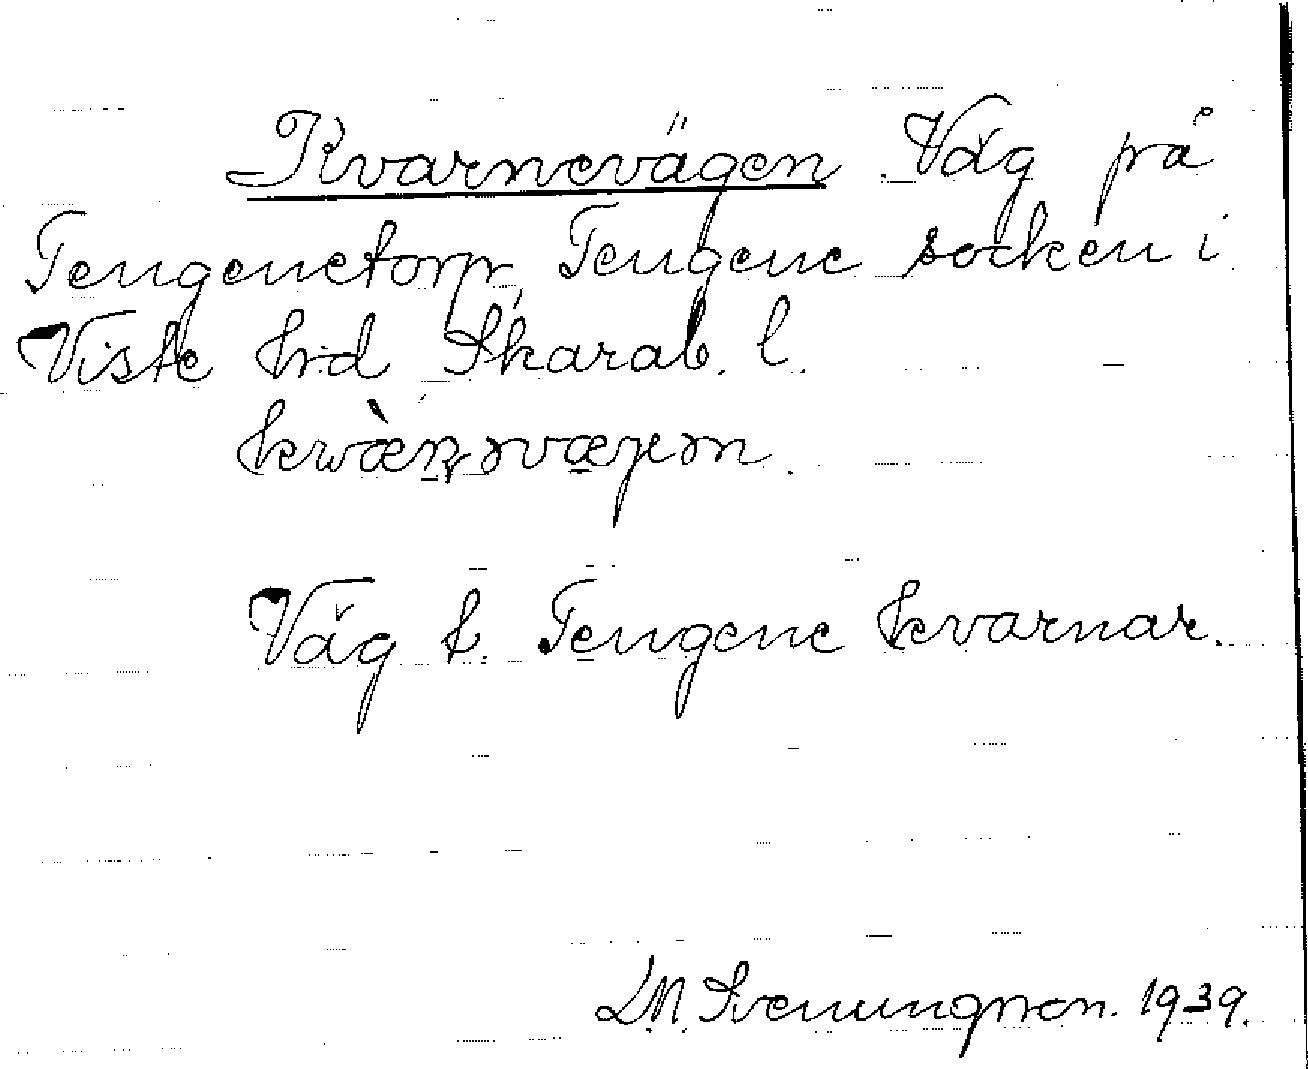 Kvarnevägen. Väg på
Tengenetorp, Tengene socken i
Viste hd Skarab. l.
Väg t. Tengene kvarnar.
L.M. Svenungsson. 1939.